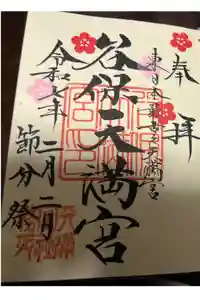 奉拝
東日本最古之天満宮
谷保天満宮
令和七年
二月二日
節分祭